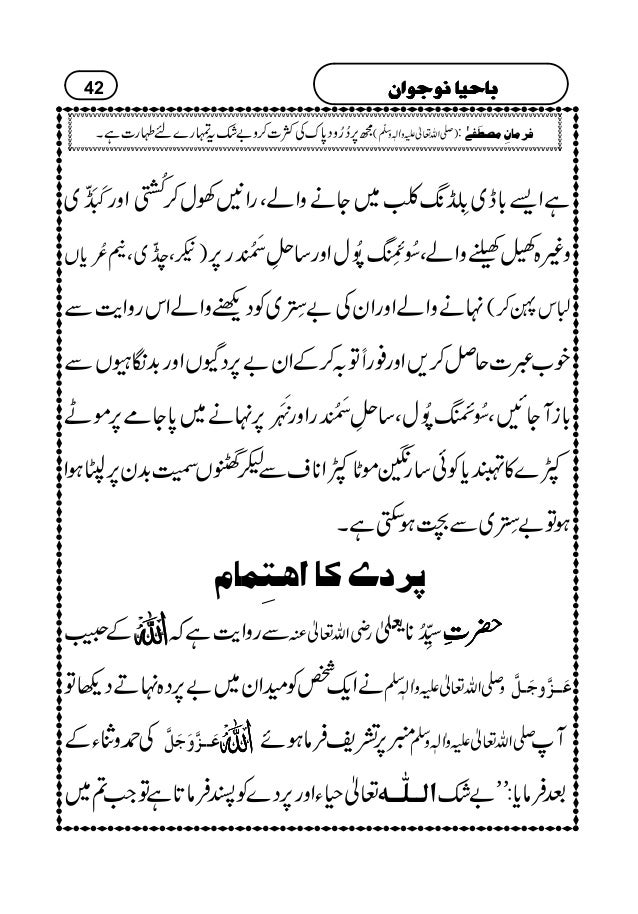 باحیا نوجوان
42
فرمانِ مصطَفٰے :(صلی اللہ تعالیٰ علیہ واٰلہٖ وسلّم) مجھ پر دُرُود پاک کی کثرت کرو بے شک یہ تمہارے لئے طہارت ہے۔
ہے ایسے باڈی بِلڈنگ کلب میں جانے والے، رانیں کھول کر کُشتی اور کَبَڈّی
وغیرہ کھیل کھیلنے والے، سُوئِمِنگ پُول اور ساحلِ سَمُندر پر (نَیکر، چڈّی، نیم عُریاں
لباس پہن کر) نہانے والے اور ان کی بے سِتری کو دیکھنے والے اس روایت سے
خوب عبرت حاصل کریں اور فوراً توبہ کر کے ان بے پردگیوں اور بدنگاہیوں سے
باز آ جائیں، سُوئمنگ پُول، ساحلِ سَمُندر اور نَہَر پر نہانے میں پاجامے پر موٹے
کپڑے کا تہبند یا کوئی سا رنگین موٹا کپڑا ناف سے لیکر گھٹنوں سمیت بدن پر لپٹا ہوا
ہو تو بے سِتری سے بچت ہو سکتی ہے۔
پردے کا اھتِمام
حضرتِ سیِّدُ نا یعلیٰ رضی اللہ تعالیٰ عنہ سے روایت ہے کہ اللہ کے حبیب
عَزَّوَجَلَّ وصلی اللہ تعالیٰ علیہ واٰلہٖ وسلم نے ایک شخص کو میدان میں بے پردہ نہاتے دیکھا تو
آپ صلی اللہ تعالیٰ علیہ واٰلہٖ وسلم منبر پر تشریف فرما ہوئے اللہ عَزَّوَجَلَّ کی حمد و ثناء کے
بعد فرمایا: ’’بے شک اللہ تعالیٰ حیاء اور پردے کو پسند فرماتا ہے تو جب تم میں